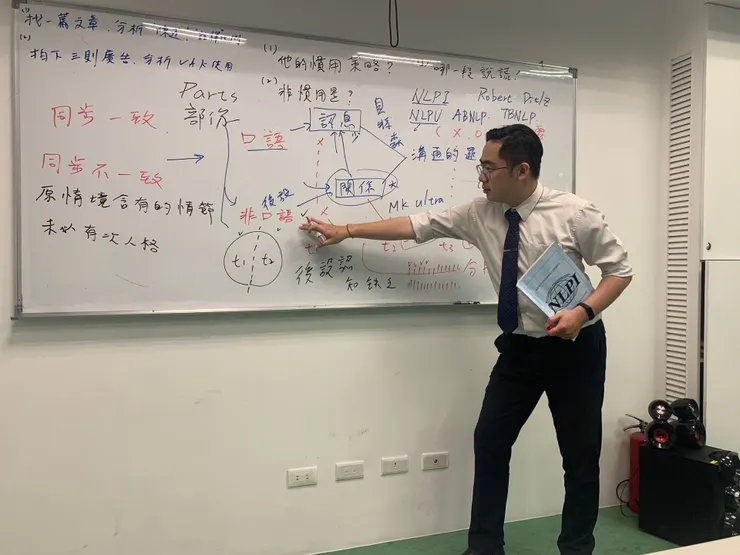 找一篇文章,分析
(2)
拍下三則廣告,分析 VAK使用
(1)
他的慣用策略?
哪一段說謊!
(2)
非慣用是?
Parts
部份
同步一致
同步不一致
原情境含有的情節
未必有次人格
口語
訊息
關係
非口語
後設
t₁ t₂
後設認知缺乏
NLPI Robert Dilz
NLPU ABNLP TBNLP
( X. O
溝通的
MK ultra
t₂ t₃
NLPI